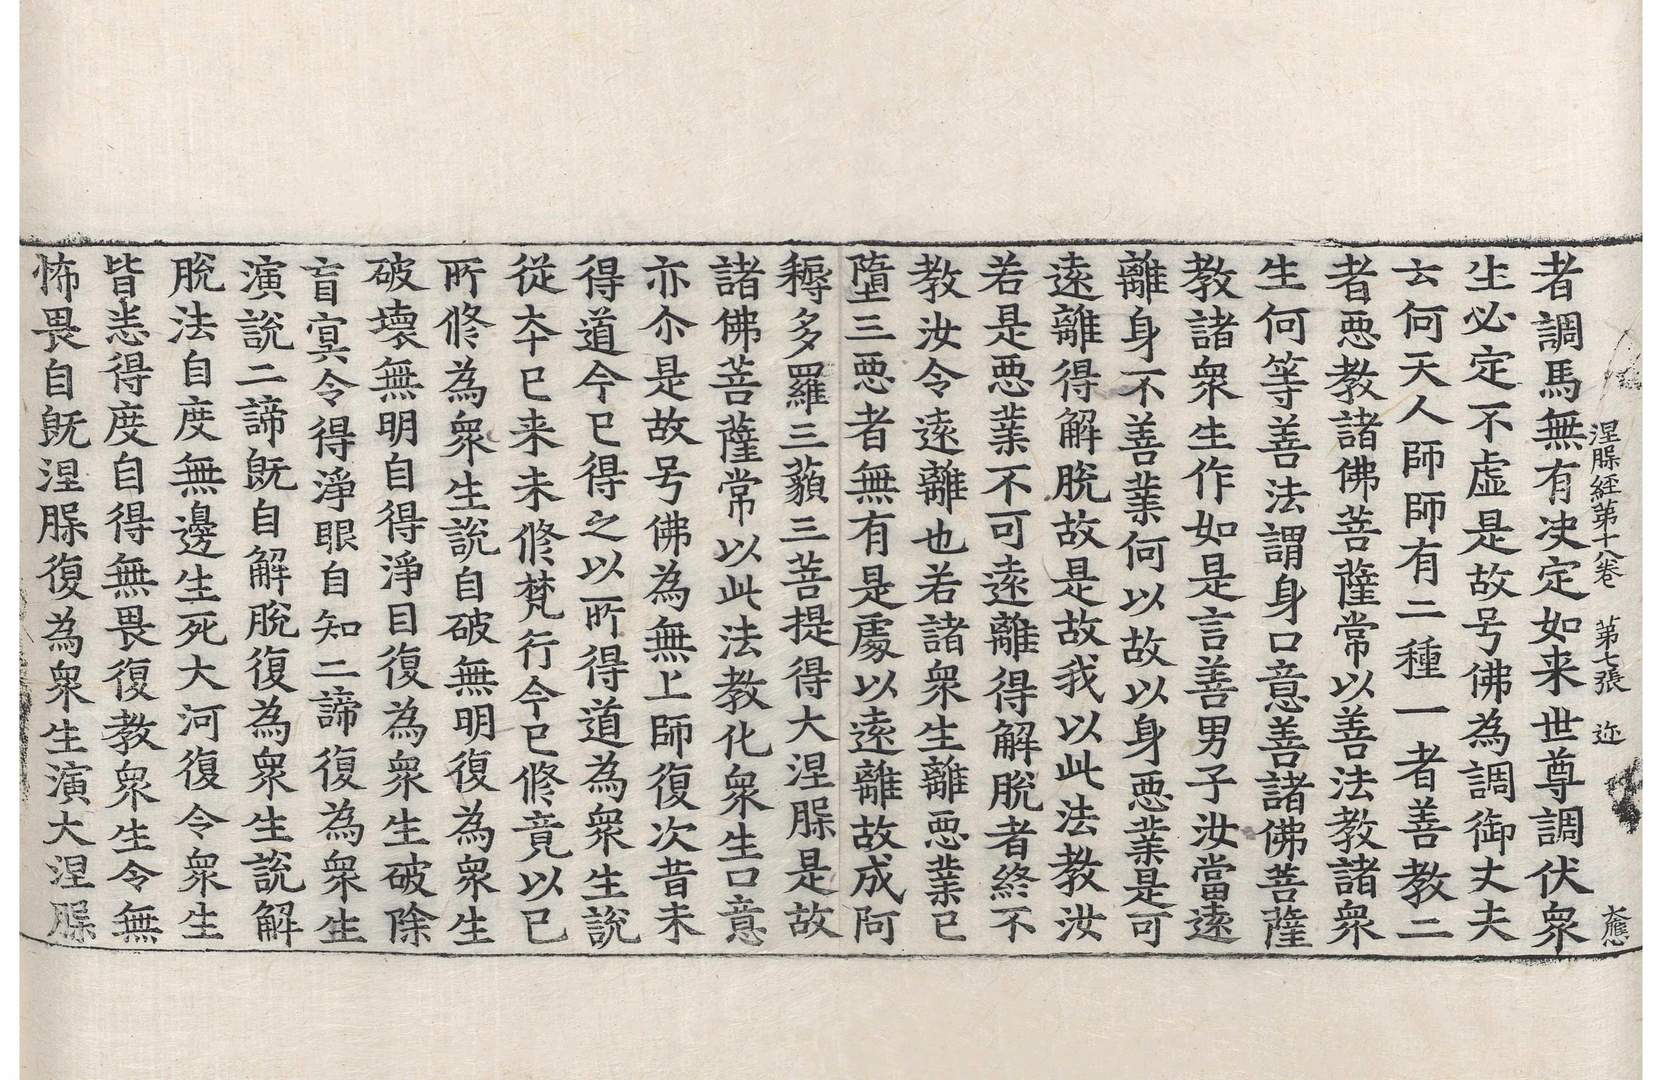 涅槃経第十八卷 第七張 迩 大應
者調馬無有决定如来世尊調伏衆
生必定不虚是故号佛為調御丈夫
云何天人師師有二種一者善教二
者悪教諸佛菩薩常以善法教諸衆
生何等善法謂身口意善諸佛菩薩
教諸衆生作如是言善男子汝當遠
離身不善業何以故以身悪業是可
遠離得解脫故是故我以此法教汝
若是悪業不可遠離得解脫者終不
教汝令遠離也若諸衆生離悪業已
墮三悪者無有是處以遠離故成阿
耨多羅三藐三菩提得大涅槃是故
諸佛菩薩常以此法教化衆生口意
亦尒是故号佛為無上師復次昔未
得道今已得之以所得道為衆生說
從夲已来未修梵行今已修竟以已
所修為衆生說自破無明復為衆生
破壞無明自得淨目復為衆生破除
盲冥令得淨眼自知二諦復為衆生
演說二諦既自解脫復為衆生說解
脫法自度無邊生死大河復令衆生
皆悉得度自得無畏復教衆生令無
怖畏自既涅槃復為衆生演大涅槃